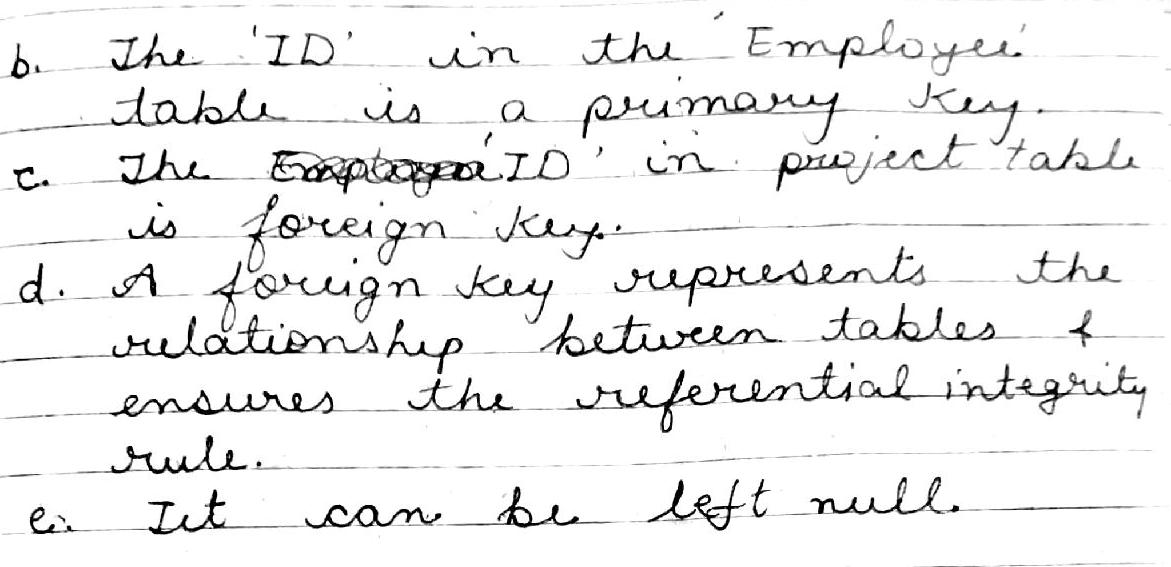 b. The 'ID' in the 'Employee'
table is a primary key.
c. The 'ID' in project table
is foreign key.
d. A foreign key represents the
relationship between tables &
ensures the referential integrity
rule.
e. Iet can be left null.